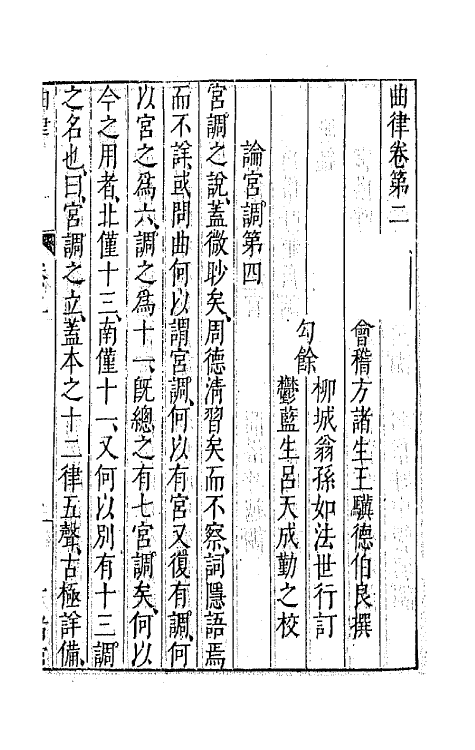 曲律卷第二
會稽方諸生王驥德伯良撰
柳城翁孫如法世行訂
勾餘
鬱藍生呂天成勤之校
論宮調第四
宮調之說、蓋微眇矣、周德清習矣而不察、詞隱語焉
而不詳、或問曲何以謂宮調、何以有宮又復有調、何
以宮之爲六、調之爲十一、旣總之有七宮調矣、何以
今之用者、北僅十三、南僅十一、又何以別有十三調
之名也、曰、宮調之立、蓋本之十二律五聲、古極詳備、